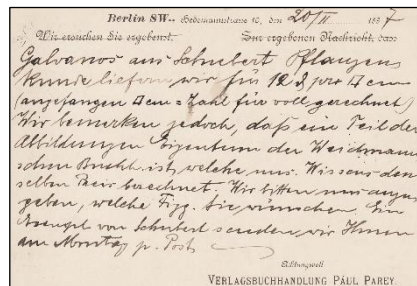 Berlin SW., Hedemannstrasse 10, den 20/II 1897
Wir ersuchen Sie ergebenst. Zur ergebenen Nachricht, dass
Galvanos aus Schubert Pflanzen
kunde liefern wir für 12 ₰ pro □ cm
(angefangen □ cm = Zahl für voll gerechnet)
Wir bemerken jedoch, daß ein Teil der
Abbildungen Eigentum der Weidmann
schen Buchh. ist, welche uns. Wissens den
selben Preis berechnet. Wir bitten uns anzu
geben, welche Figg. Sie wünschen. Ein
Exempl von Schubert senden wir Ihnen
am Montag p. Post
Achtungsvoll
VERLAGSBUCHHANDLUNG PAUL PAREY.